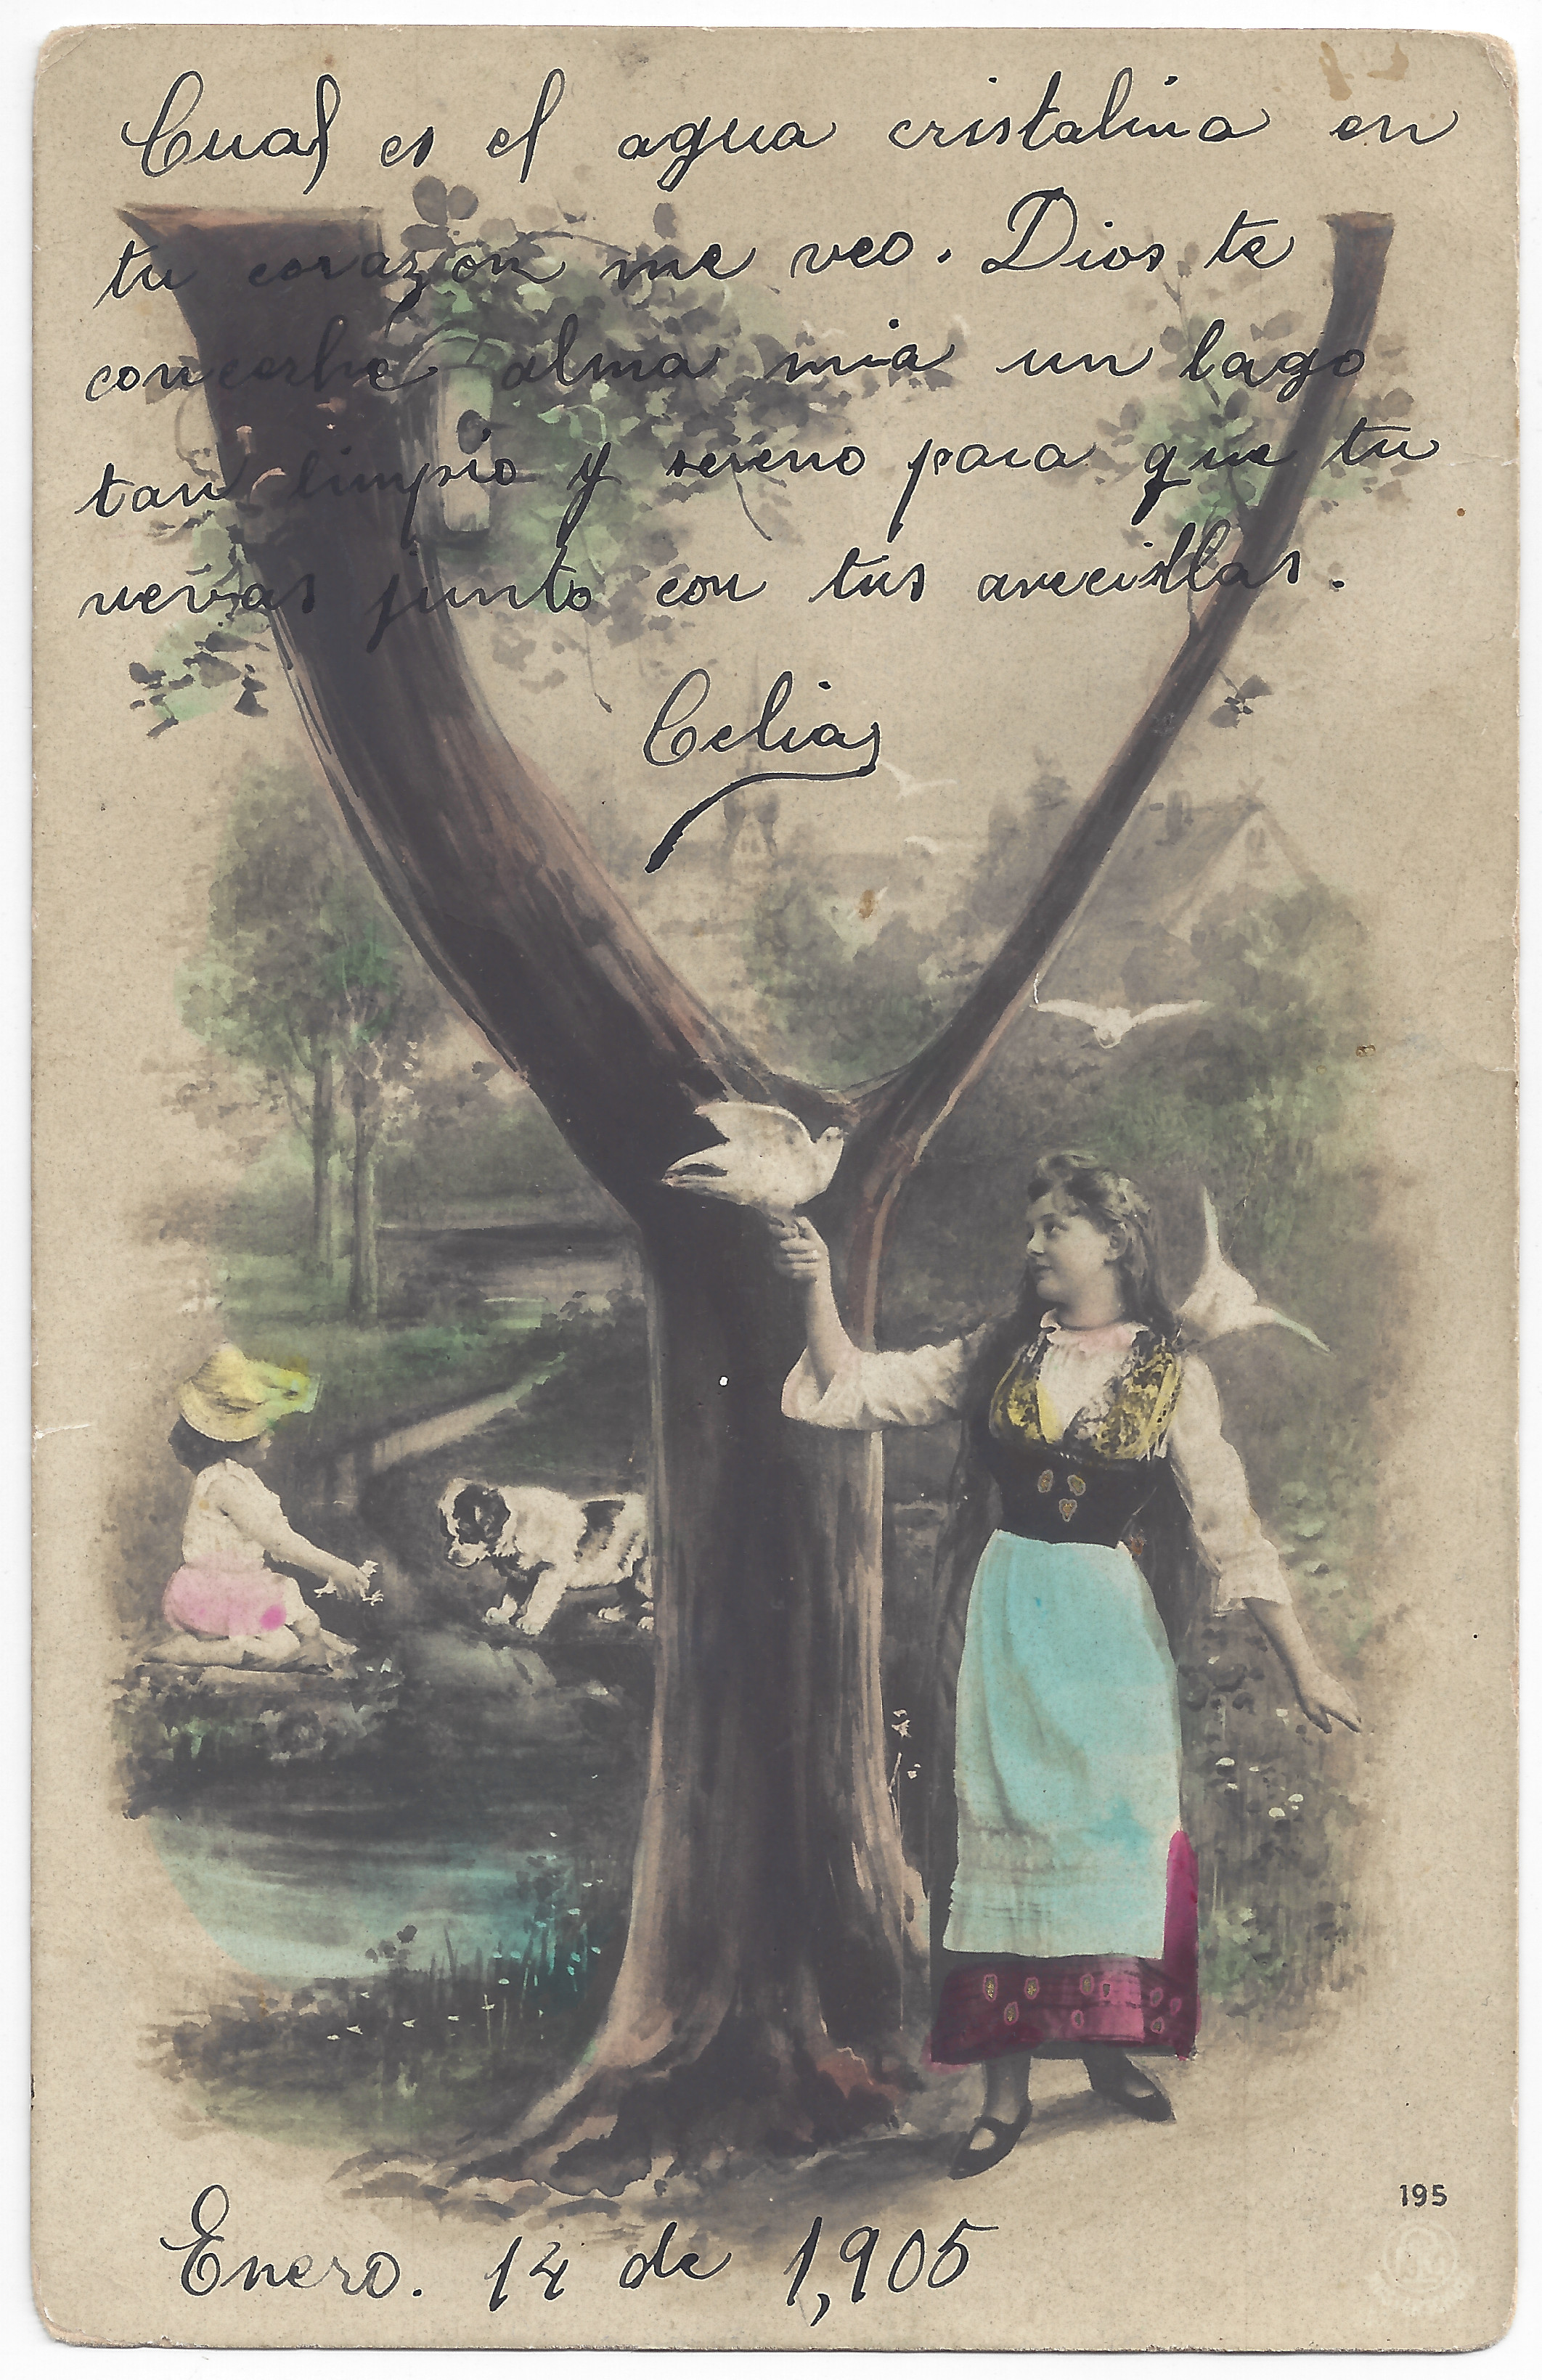 Cual es el agua cristalina en
tu corazón me veo. Dios te
alma mia un lago
tan limpio y sereno para que tu
junto con tus avecillas.
Celia
195
Enero. 14 de 1,905